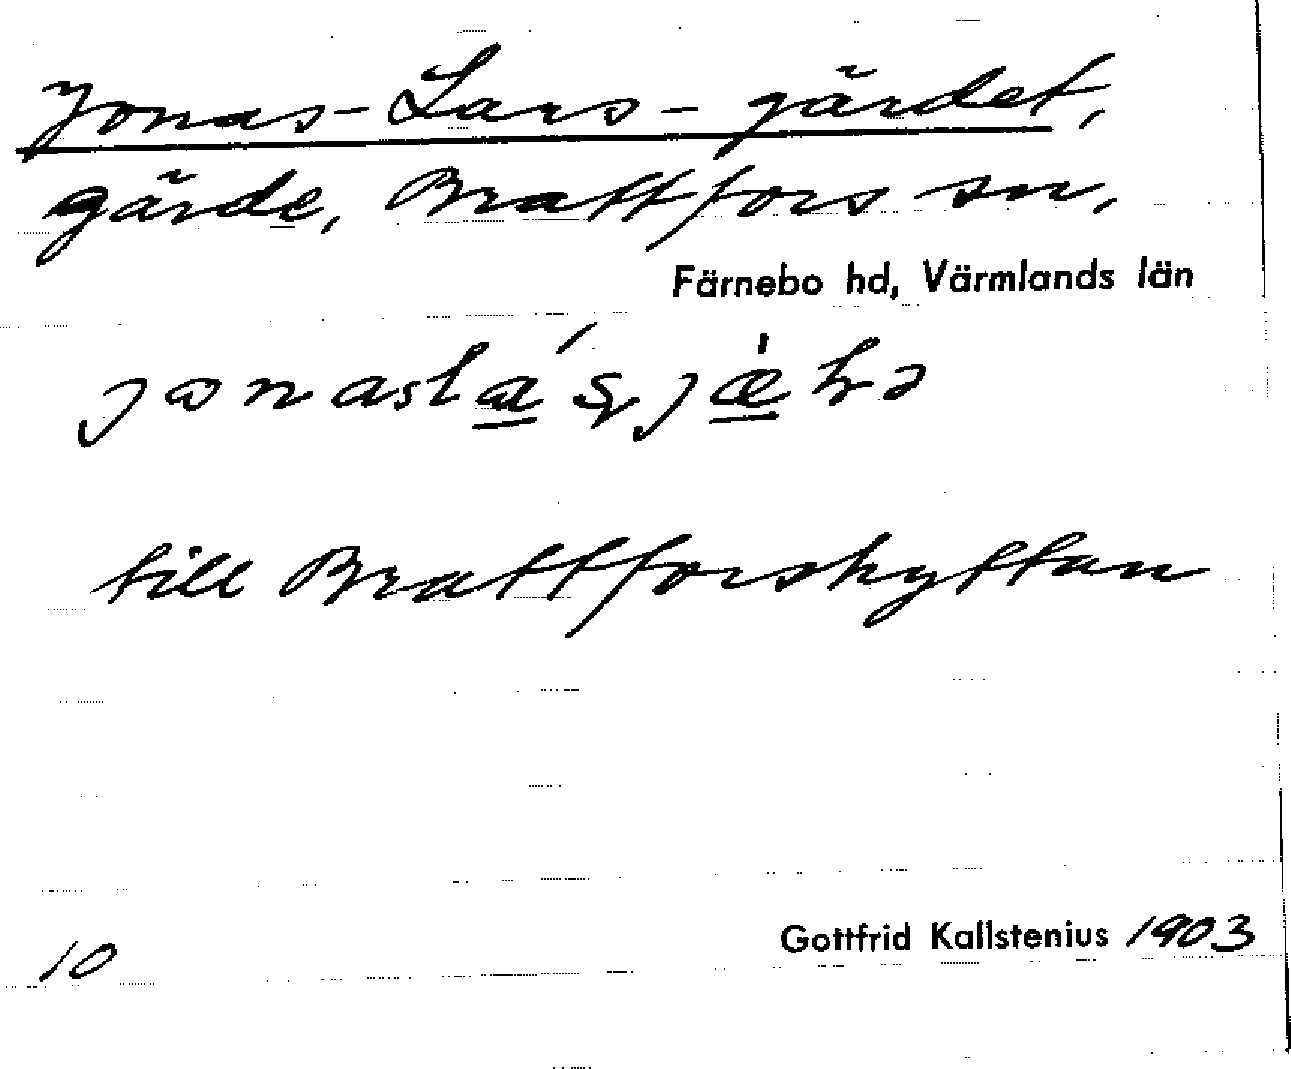 Jonas-Lars-gärdet,
gärde, Brattfors sn,
Färnebo hd, Värmlands län
till Brattforshyttan
10
Gottfrid Kallstenius 1903